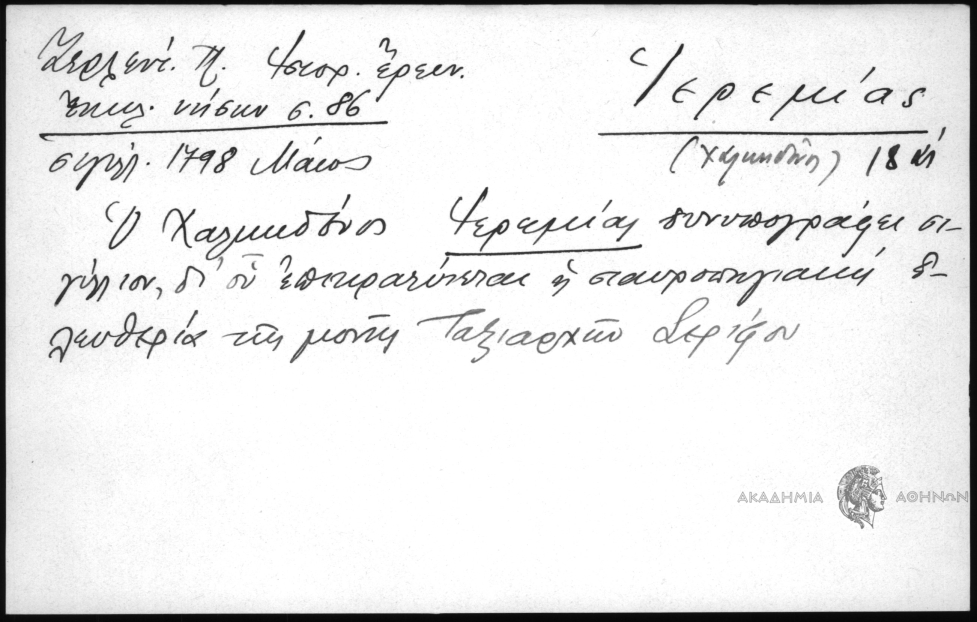 Ζερλέντ. Π. Ἱστορ. ἔρευν.
Ἐκκλ. νήσων σ. 86
σιγίλ. 1798 Μάιος
Ἱερεμίας
(Χαλκηδόνος) 18 αἰ
Ὁ Χαλκηδόνος Ἱερεμίας συνυπογράφει σι-
γίλλιον, δι' οὗ ἐπικρατύνεται ἡ σταυροπηγιακή ἐ-
λευθερία τῆς μονῆς Ταξιαρχῶν Σερίφου
ΑΚΑΔΗΜΙΑ ΑΘΗΝΩΝ